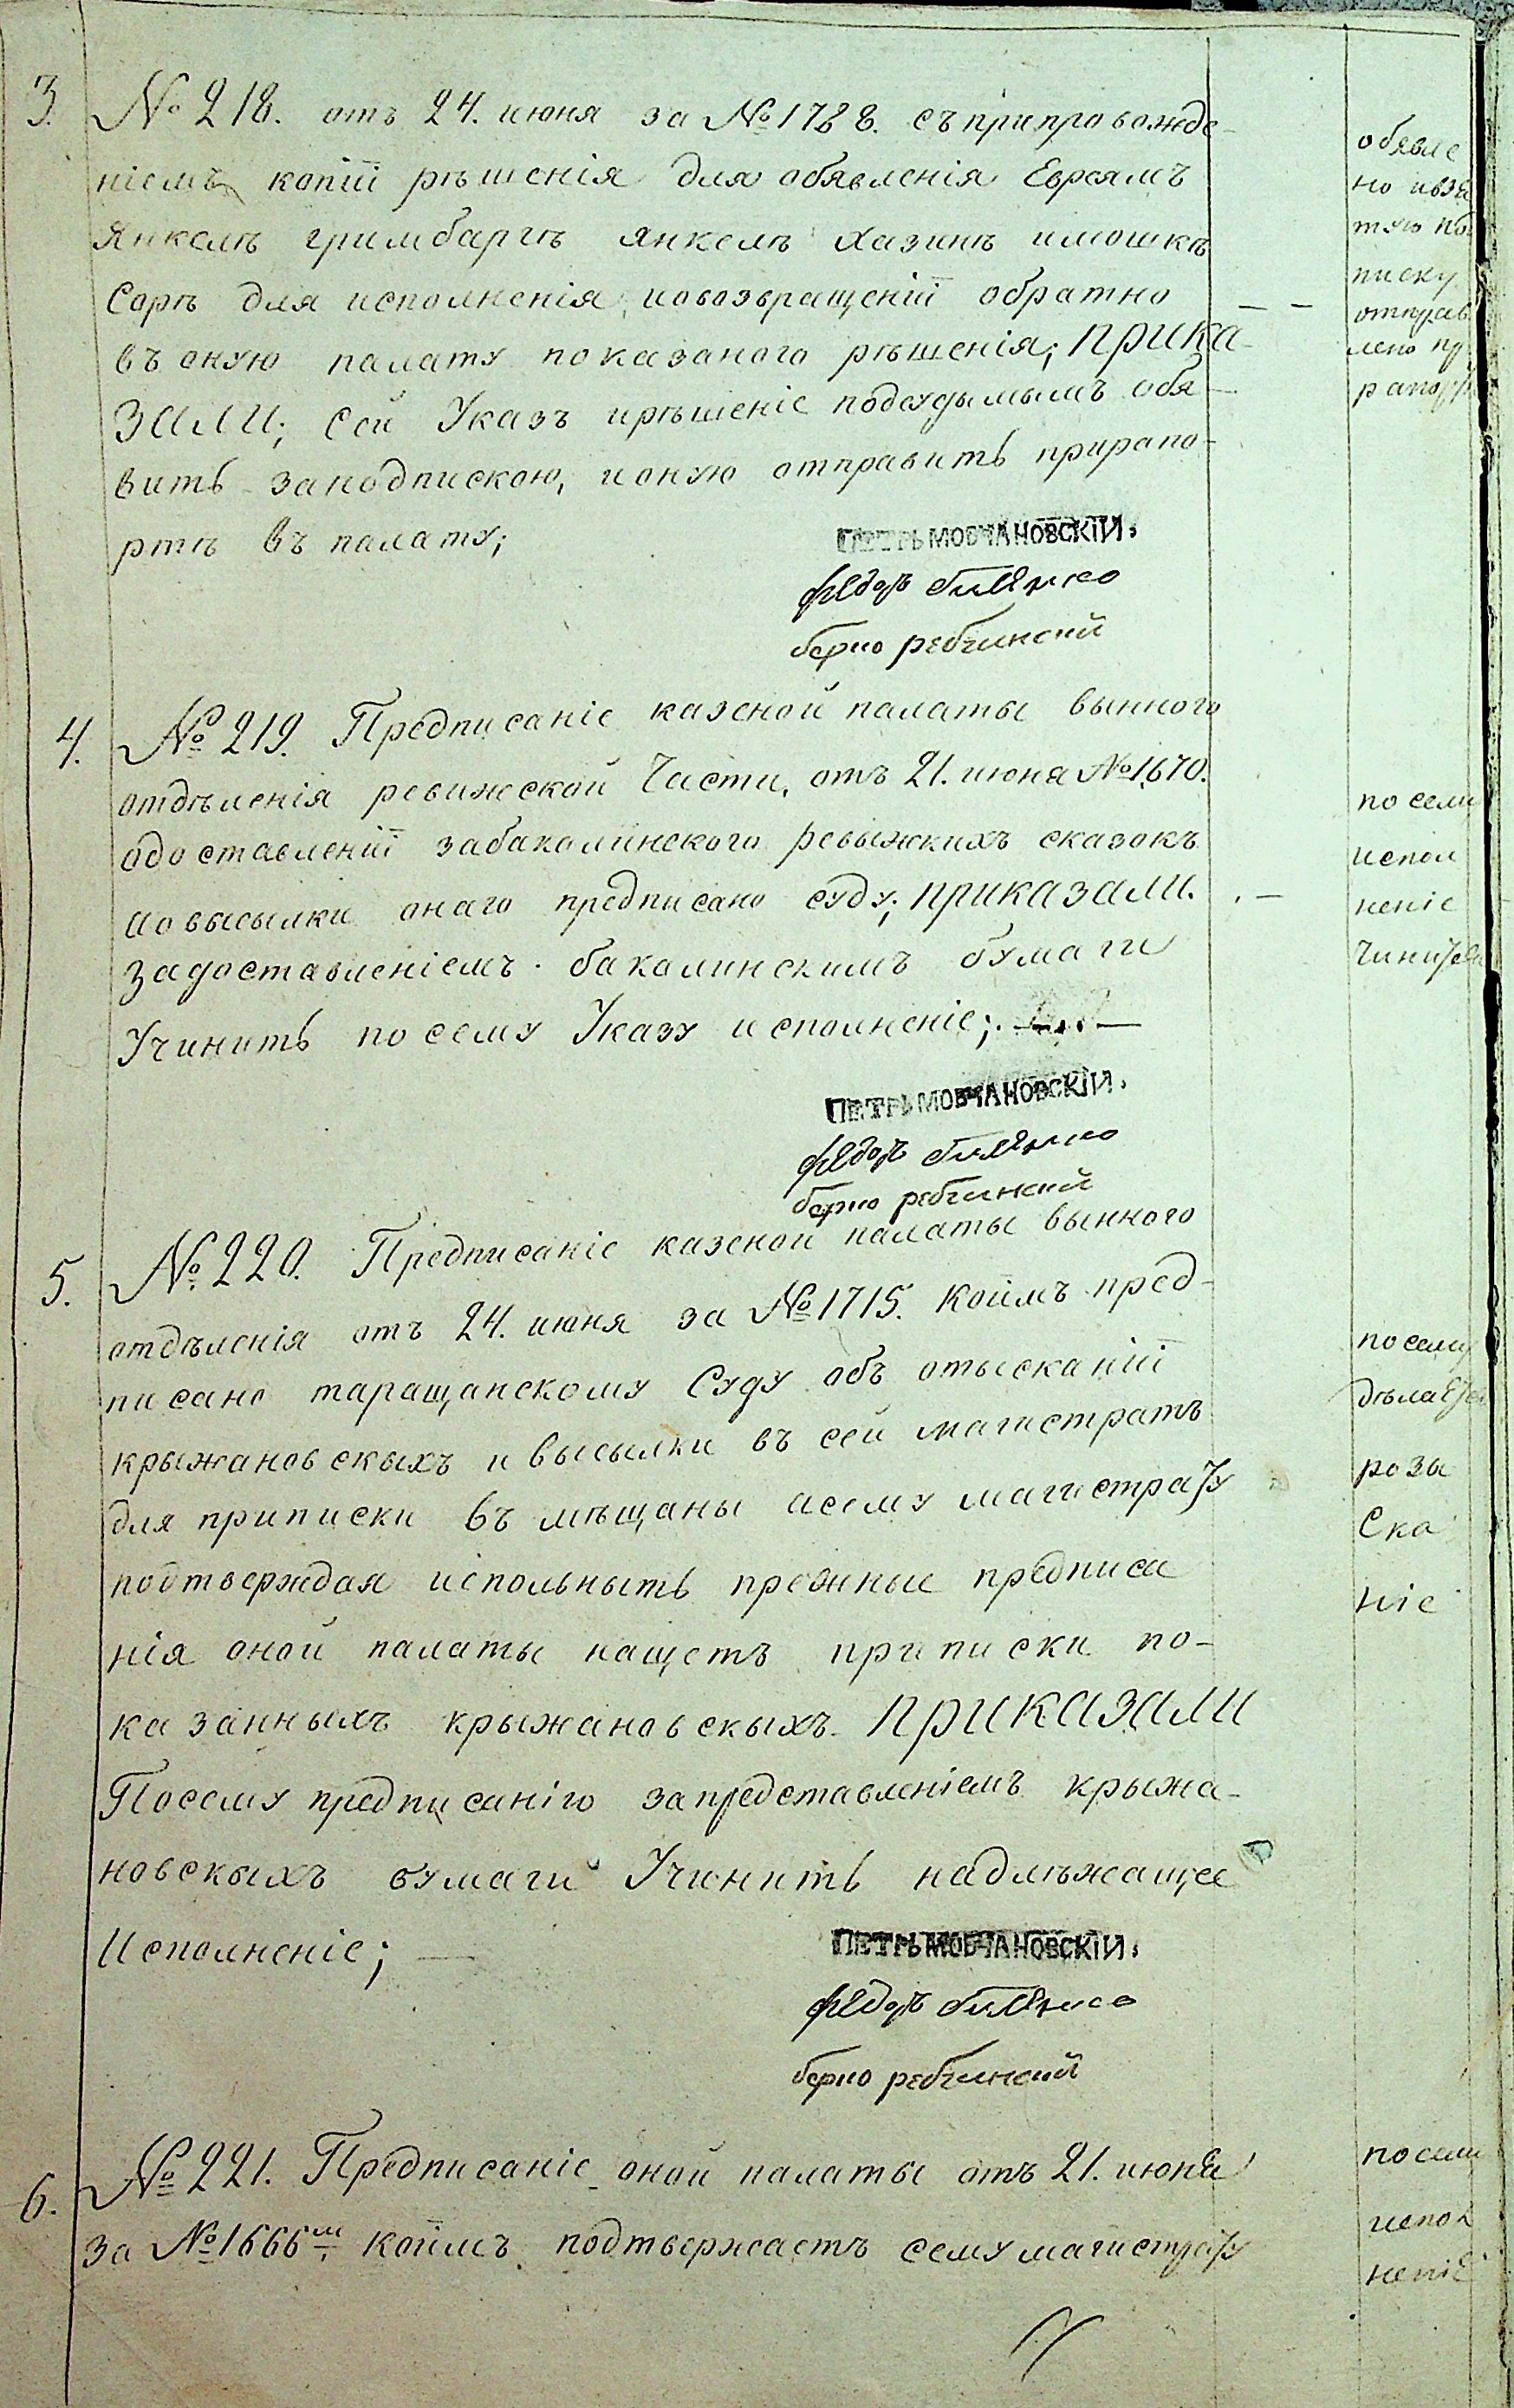 3. № 218. отъ 24. июня за № 1788. съ припровожде-
ніемъ копіи рѣшенія для обявленія Евреямъ
Янкелѣ гримбаргѣ янкелѣ хазинѣ имошкѣ
Сорѣ для исполненія, иовозвращеніи обратно
въ оную палату показаного рѣшенія; Прика-
зали; Сей Указъ ирѣшеніе подсудымымъ обя-
вить заподпискою, ионую отправить прирапо-
ртѣ въ палату;
обявле
но ивзя
тую по
писку
отправ
лено пр
рапор
ПЕТРЪ МОВЧАНОВСКІЙ.
федоръ билянко
берко ребчинскій
4. № 219. Предписаніе казеной палаты вынного
отдѣленія ревижской Части, отъ 21. июня № 1670.
одоставленіи забакалинского ревыжкихъ сказокъ
иовысылки онаго предписано суду; приказали.
Задоставленіемъ бакалинскимъ бумаги
Учинить по сему Указу исполненіе;
по сему
испол
неніе
Чинится
ПЕТРЪ МОВЧАНОВСКІЙ.
федоръ билянко
берко ребчинскій
5. № 220. Предписаніе казеной палаты вынного
отдѣленія отъ 24. июня за № 1715. коимъ пред-
писано таращанскому Суду объ отысканіи
крыжановскыхъ и высылки въ сей магистратъ
для приписки въ мѣщаны асему магистрату
подтверждая испольныть прежные предписа
нія оной палаты нащетъ приписки по-
казанныхъ крыжановскыхъ. Приказали
Посему предписанію запредставленіемъ крыжа-
новскыхъ бумаги Учинить надлѣжащее
Исполненіе;
по сему
дѣлается
розы
Ска
ніе
ПЕТРЪ МОВЧАНОВСКІЙ.
федоръ билянко
берко ребчинскій
6. № 221. Предписаніе оной палаты отъ 21. июня
за № 1666м коимъ подтвержаетъ сему магистрату
по сему
испол
неніе